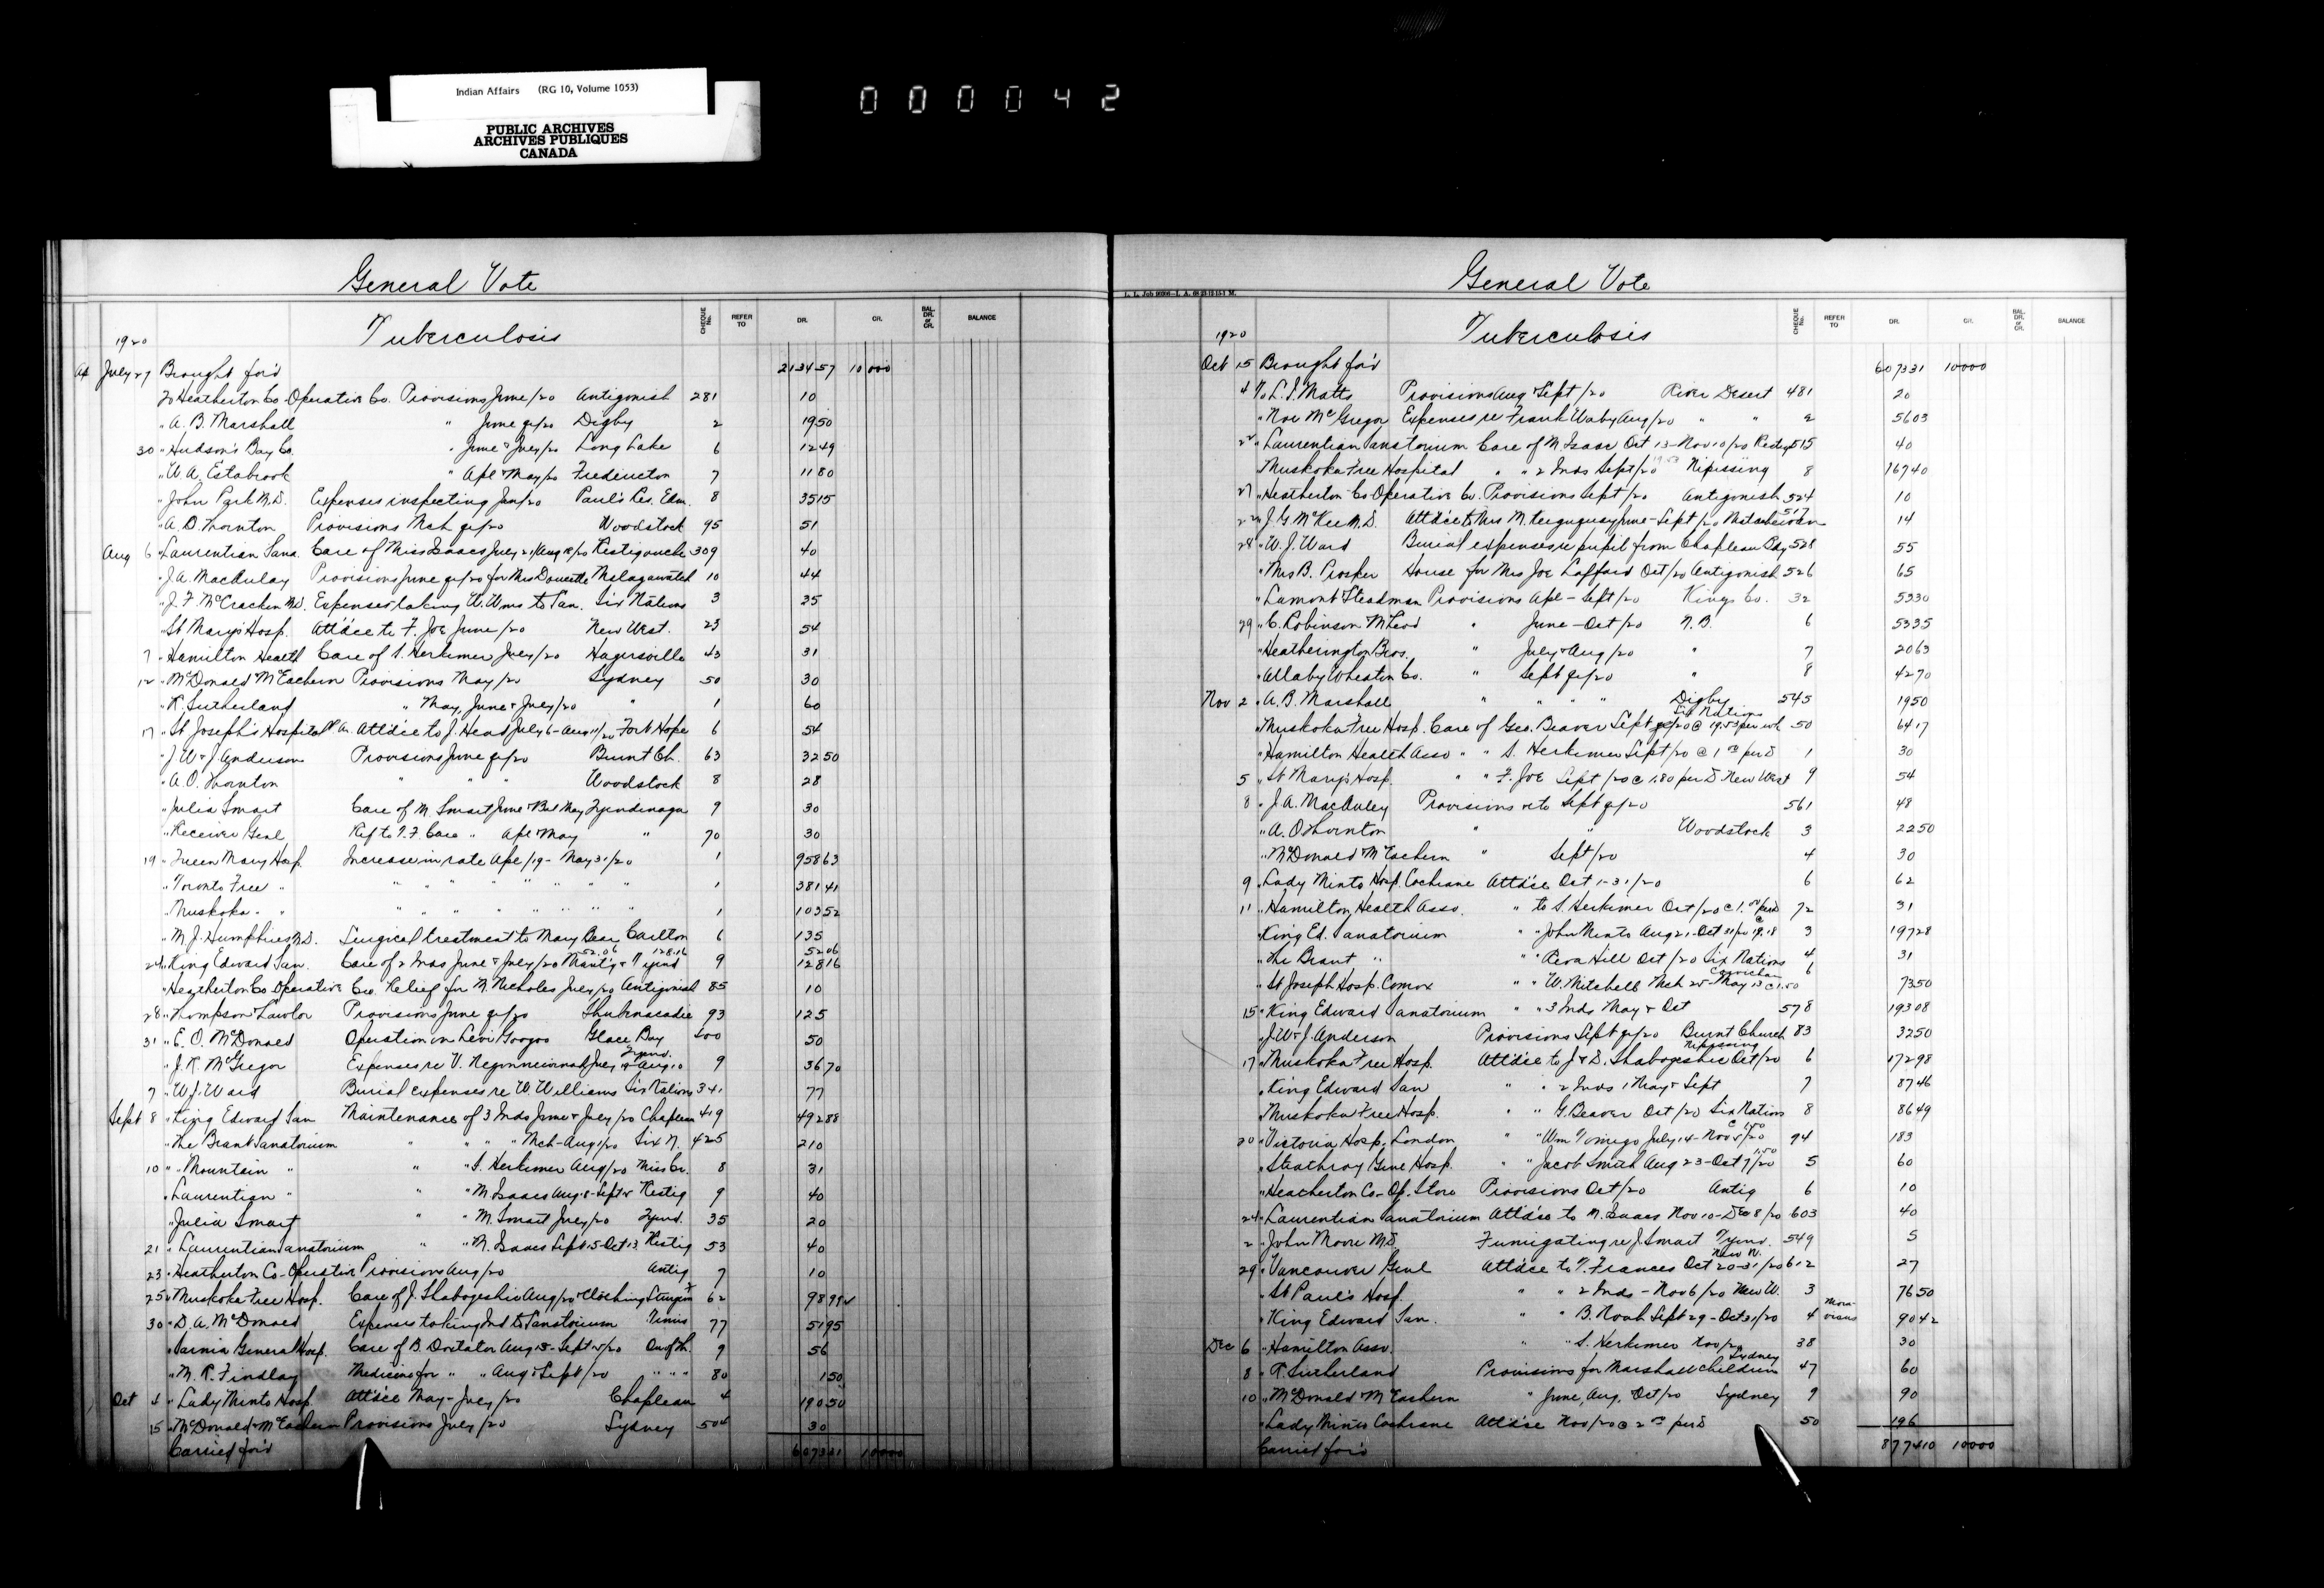 Indian Affairs (RG 10, Volume 1053)
PUBLIC ARCHIVES
ARCHIVES PUBLIQUES
CANADA
000042
General Vote
CHEQUE No. REFER TO DR. CR. BAL. DR. or CR. BALANCE
1920 Tuberculosis
July 27 Brought for'd 213457 10000
To Heatherton Co-Operative Co. Provisions June/20 Antigonish 281 10
" A. B. Marshall " June qr/20 Digby 2 1950
30 " Hudson's Bay Co. " June & July/20 Long Lake 6 1249
" W. A. Estabrook " Apl & May/20 Fredericton 7 1180
" John Park M.D. Expenses inspecting Jun/20 Paul's Res. Edm. 8 3515
" A. D. Thornton Provisions Mch qr/20 Woodstock 95 51
Aug 6 " Laurentian Sana. Care of Miss Isaacs July 21/Aug 18/20 Restigouche 309 40
" J. A. MacAulay Provisions June qr/20 for Mrs Doucette Malagawatch 10 44
" J. F. McCracken M.D. Expenses taking W. Wms to San. Six Nations 3 25
" St Mary's Hosp. Att'd'ce to F. Joe June/20 New West. 23 54
7 " Hamilton Health Care of S. Herkimer July/20 Hagersville 43 31
12 " McDonald & McEachern Provisions May/20 Sydney 50 30
" R. Sutherland " May, June & July/20 " 1 60
17 " St Joseph's Hospital P.A. Att'd'ce to J. Head July 6-Aug 11/20 Fort Hope 6 54
" J. W. & J. Anderson Provisions June qr/20 Burnt Ch. 63 3250
" A. O. Thornton " " " Woodstock 8 28
" Julia Smart Care of M. Smart June & Bal May Tyendinaga 9 30
" Receiver Genl Ref to T.F. Care " Apl & May " 70 30
19 " Queen Mary Hosp. Increase in rate Apl/19 - May 31/20 1 95863
" Toronto Free " " " " " " " " 1 38141
" Muskoka " " " " " " " " " 1 10352
" M. J. Humphries M.D. Surgical treatment to Mary Bear Carlton 6 135
52.06 128.16 5206
24 " King Edward San. Care of 2 Inds June & July/20 & Tyend 9 12816
" Heatherton Co Operative Co. Relief for M. Nicholas July/20 Antigonish 85 10
28 " Thompson & Lawlor Provisions June qr/20 Shubenacadie 93 125
31 " E. O. McDonald Operation on Levi Googoo Glace Bay 400 50
Tyend.
" J. R. McGregor Expenses re V. July & Aug 10 9 3670
7 " W. J. Ward Burial expenses re W. Williams Six Nations 341 77
Sept 8 " King Edward San Maintenance of 3 Inds June & July/20 Chapleau 419 49288
" The Brant Sanatorium " " " " Mch-Aug 1/20 Six N. 425 210
10 " " Mountain " " " S. Herkimer Aug/20 Miss Cr. 8 31
" Laurentian " " " M. Isaacs Aug 18-Sept 15 Restig 9 40
" Julia Smart " " M. Smart July/20 Tyend. 35 20
21 " Laurentian Sanatorium " " M. Isaacs Sept 15-Oct 13 Restig 53 40
23 " Heatherton Co-Operative Provisions Aug/20 Antig 7 10
25 " Muskoka Free Hosp. Care of J. Shabogeshic Aug/20 & Clothing Sturgeon F 62 9898
30 " D. A. McDonald Expenses taking Ind to Sanatorium Timis 77 5195
" Sarnia General Hosp. Care of B. Doxtator Aug 18-Sept 15/20 9 56
" M. R. Findlay Medicine for " " Aug & Sept/20 " " " 80 150
Oct 4 " Lady Minto Hosp. Att'd'ce May-July/20 Chapleau 4 19050
15 " McDonald & McEachern Provisions July/20 Sydney 504 30
Carried for'd 607331 10000
General Vote
CHEQUE No. REFER TO DR. CR. BAL. DR. or CR. BALANCE
1920 Tuberculosis
Oct 15 Brought for'd 607331 10000
4 To L. S. Watts Provisions Aug & Sept/20 River Desert 481 20
" Noe McGregor Expenses re Frank Waby Aug/20 " " 2 5603
22 " Laurentian Sanatorium Care of M. Isaac Oct 13-Nov 10/20 Restig 515 40
" Muskoka Free Hospital " " 2 Inds Sept/20 Nipissing 8 16740
27 " Heatherton Co Operative Co. Provisions Sept/20 Antigonish 524 10
22 " J. G. McKee M.D. Att'd'ce to Mrs M. June-Sept/20 Matachewan 517 14
28 " W. J. Ward Burial expenses re pupil from Chapleau Bdg 528 55
" Mrs B. Prosper House for Mrs Joe Lafford Oct/20 Antigonish 526 65
" Lamont Steadman Provisions Apl - Sept/20 Kings Co. 32 5330
29 " C. Robinson McLeod " June-Oct/20 N.B. 6 5335
" Heatherington Bros. " July & Aug/20 " 7 2063
" Allaby Wheaton Co. " Sept qr/20 " 8 4270
Nov 2 " A. B. Marshall " " " Digby 545 1950
Six Nations
" Muskoka Free Hosp. Care of Geo. Beaver Sept qr/20 @ 19.53 per wk 50 6417
" Hamilton Health Asso " " S. Herkimer Sept/20 @ 1.00 per D 1 30
5 " St Mary's Hosp. " " F. Joe Sept/20 @ 1.80 per D. New West 9 54
8 " J. A. MacAuley Provisions re to Sept qr/20 561 48
" A. O. Thornton " " Woodstock 3 2250
" McDonald McEachern " Sept/20 4 30
9 " Lady Minto Hosp. Cochrane Att'd'ce Oct 1-31/20 6 62
11 " Hamilton Health Asso. " to S. Herkimer Oct/20 @ 1.00 per D 72 31
" King Ed. Sanatorium " " John Minto Aug 21-Oct 31/20 @ 19.18 3 19728
" The Brant " " " Reva Hill Oct/20 Six Nations 4 31
Cowichan
" St Joseph Hosp. Comox " " W. Mitchell Mch 25-May 13 @ 1.50 6 7350
15 " King Edward Sanatorium " " 3 Inds May & Oct 578 19308
" J. W. & J. Anderson Provisions Sept qr/20 Burnt Church 83 3250
Nipissing
17 " Muskoka Free Hosp. Att'd'ce to J. & D. Shabogeshic Oct/20 6 17298
" King Edward San " " 2 Inds 1 May & Sept 7 8746
" Muskoka Free Hosp. " " G. Beaver Oct/20 Six Nations 8 8649
@ 1.50
20 " Victoria Hosp. London " " Wm Tomigo July 14-Nov 5/20 94 183
1.50
" Strathroy Genl Hosp. " " Jacob Smith Aug 23-Oct 7/20 5 60
" Heatherton Co-Op. Store Provisions Oct/20 Antig 6 10
24 " Laurentian Sanatorium Att'd'ce to M. Isaacs Nov 10-Dec 8/20 603 40
2 " John Moore M.D. Fumigating re J. Smart Tyend. 549 5
New W.
29 " Vancouver Genl Att'd'ce to T. Frances Oct 20-31/20 612 27
" St Paul's Hosp. " " 2 Inds - Nov 6/20 New W. 3 7650
" King Edward San. " " B. Noah Sept 29-Oct 31/20 4 Moravians 9042
Dec 6 " Hamilton Asso. " " S. Herkimer Nov/20 38 30
Sydney
8 " R. Sutherland Provisions for Marshall children 47 60
10 " McDonald McEachern " June, Aug, Oct/20 Sydney 9 90
" Lady Minto Cochrane Att'd'ce Nov/20 @ 2.00 per D 50 196
Carried for'd 877410 10000